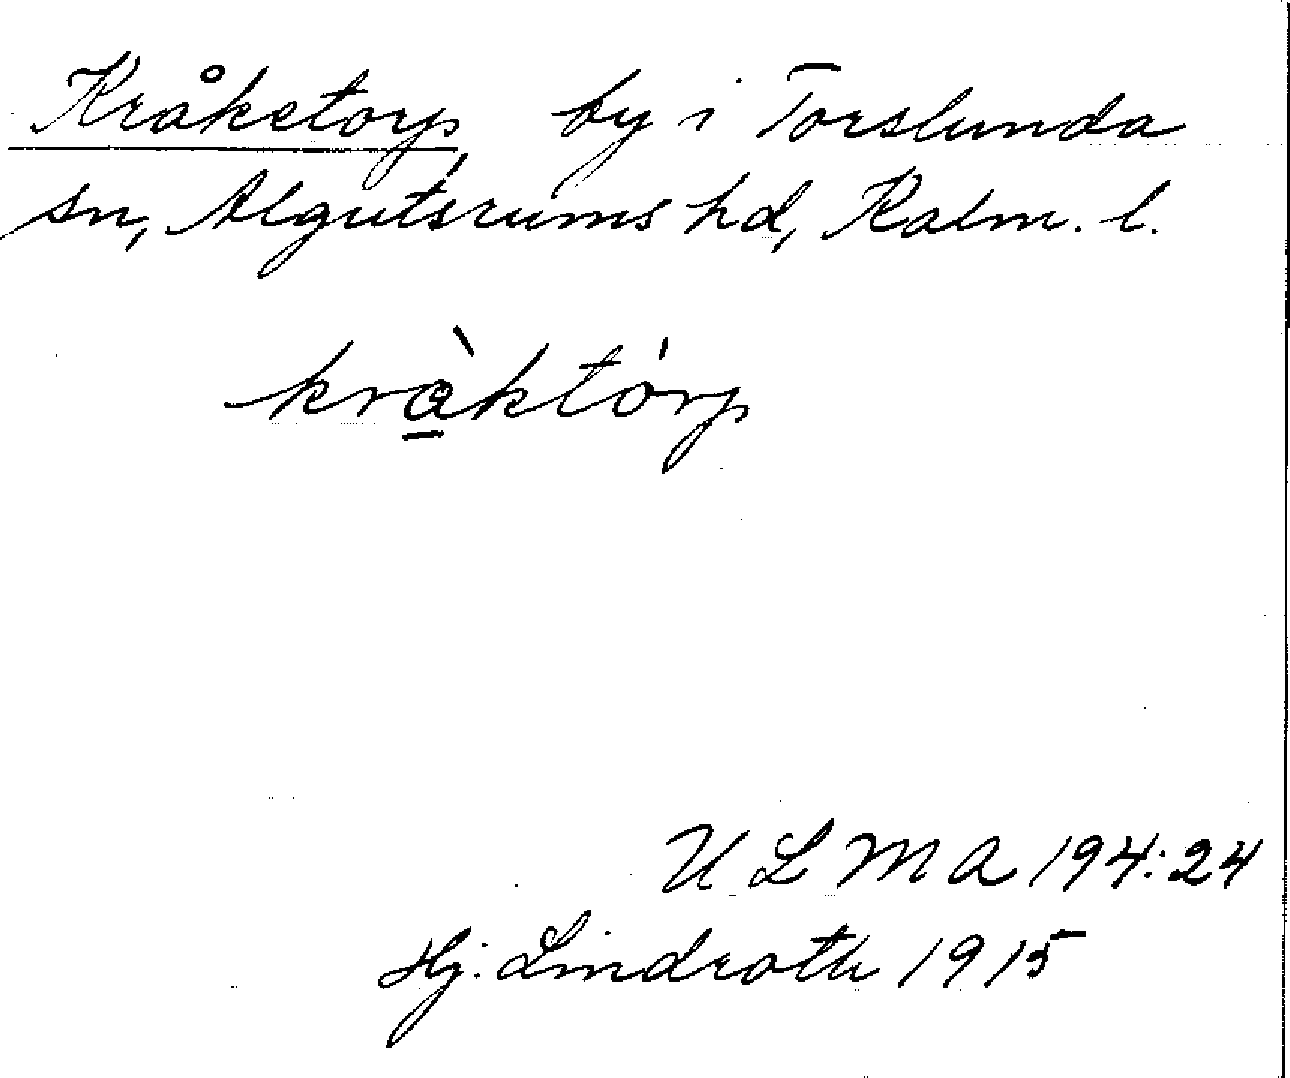 Kråketorp by i Torslunda
sn, Algutsrums hd, Kalm. l.
krà̱którp
ULMA 194:24
Hj. Lindroth 1915